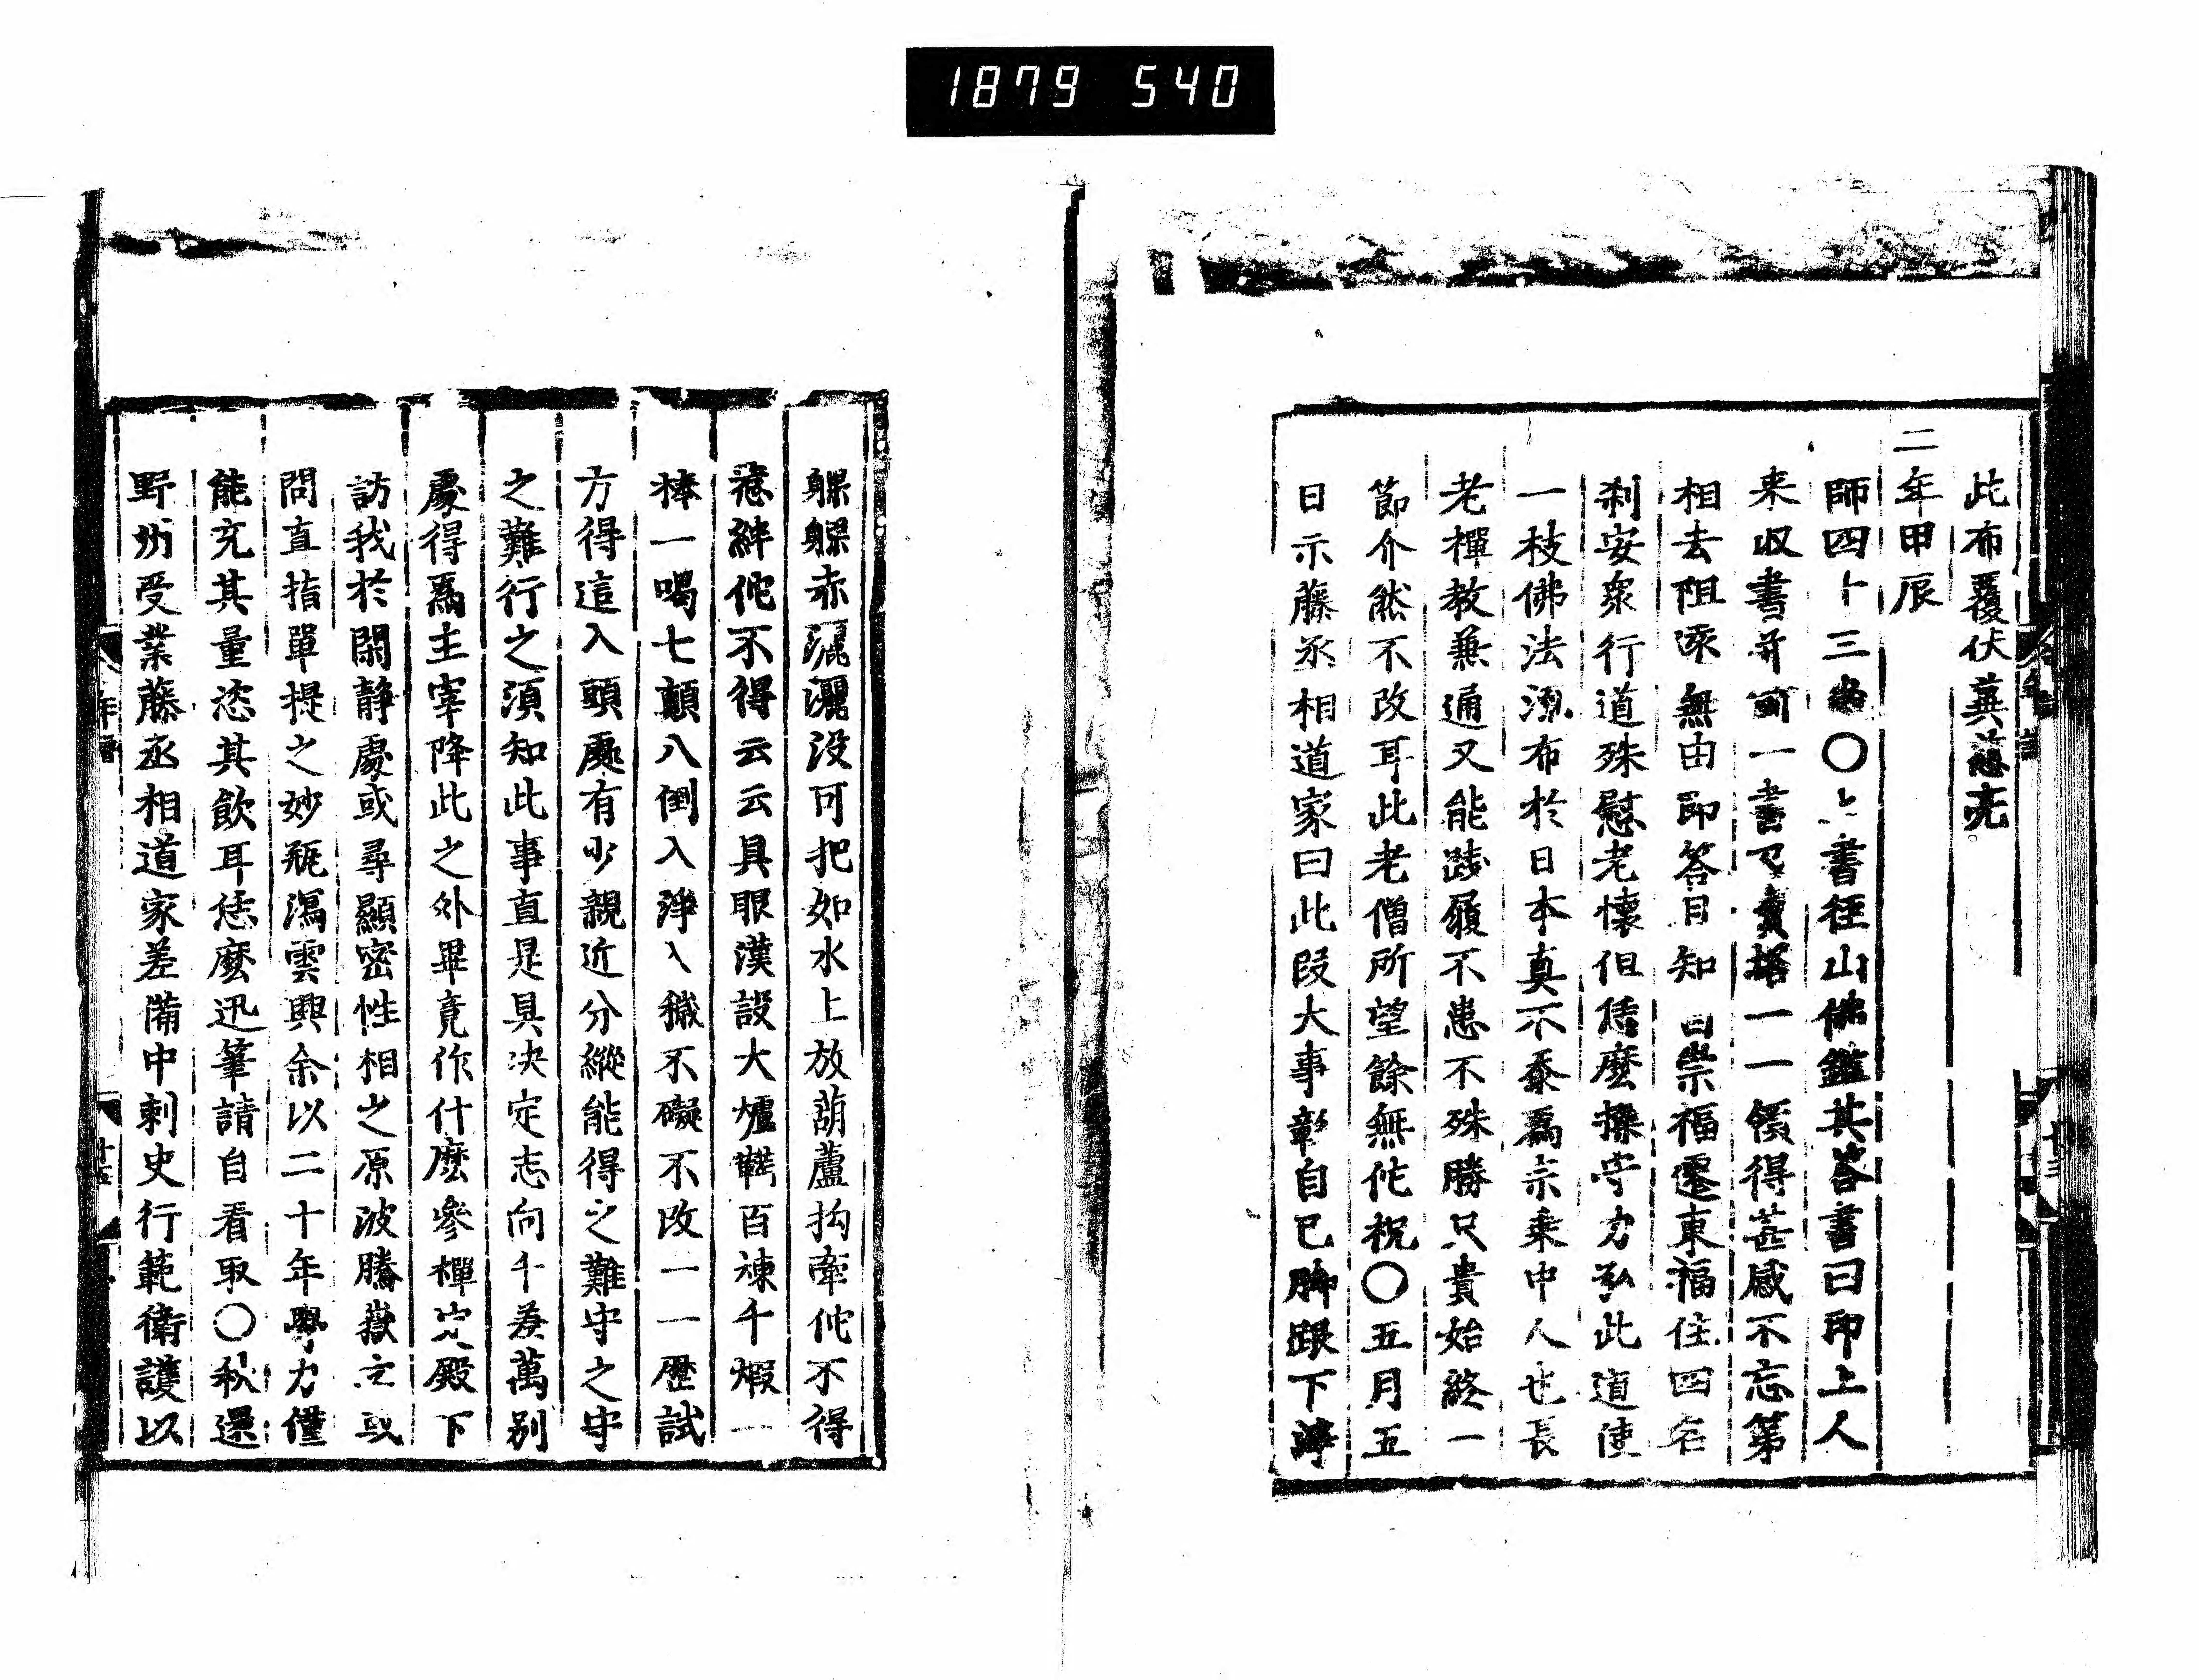 1879 540
此布覆伏冀慈亮
二年甲辰
師四十三歲〇上書徑山佛鑑其答書曰印上人
来収書并一書及賣一一領得甚感不忘第
相去阻逐無由即答日知崇福遷東福住四名
刹安衆行道殊慰老懷但恁麼操守力弘此道使
一枝佛法流布於日本真不忝爲宗乘中人也長
老禪教兼通又能踐履不患不殊勝只貴始終一
節介然不改耳此老僧所望餘無佗祝〇五月五
日示藤丞相道家曰此段大事彰自己脚跟下淨
躶躶赤灑灑没可把如水上放葫蘆拘牽佗不得
惹絆佗不得云云具眼漢設大爐鞴百煉千煅一
棒一喝七顛八倒入淨入穢不礙不改一一歷試
方得這入頭處有少親近分縱能得之難守之守
之難行之須知此事直是具决定志向千差萬别
處得爲主宰降此之外畢竟作什麼參禪定殿下
訪我於閑静處或尋顯密性相之原波騰嶽立或
問直指單提之妙瓶瀉雲興余以二十年學力僅
能充其量恣其飲耳恁麼迅筆請自看取〇秋還
野州受業藤丞相道家差備中刺史行範衛護以